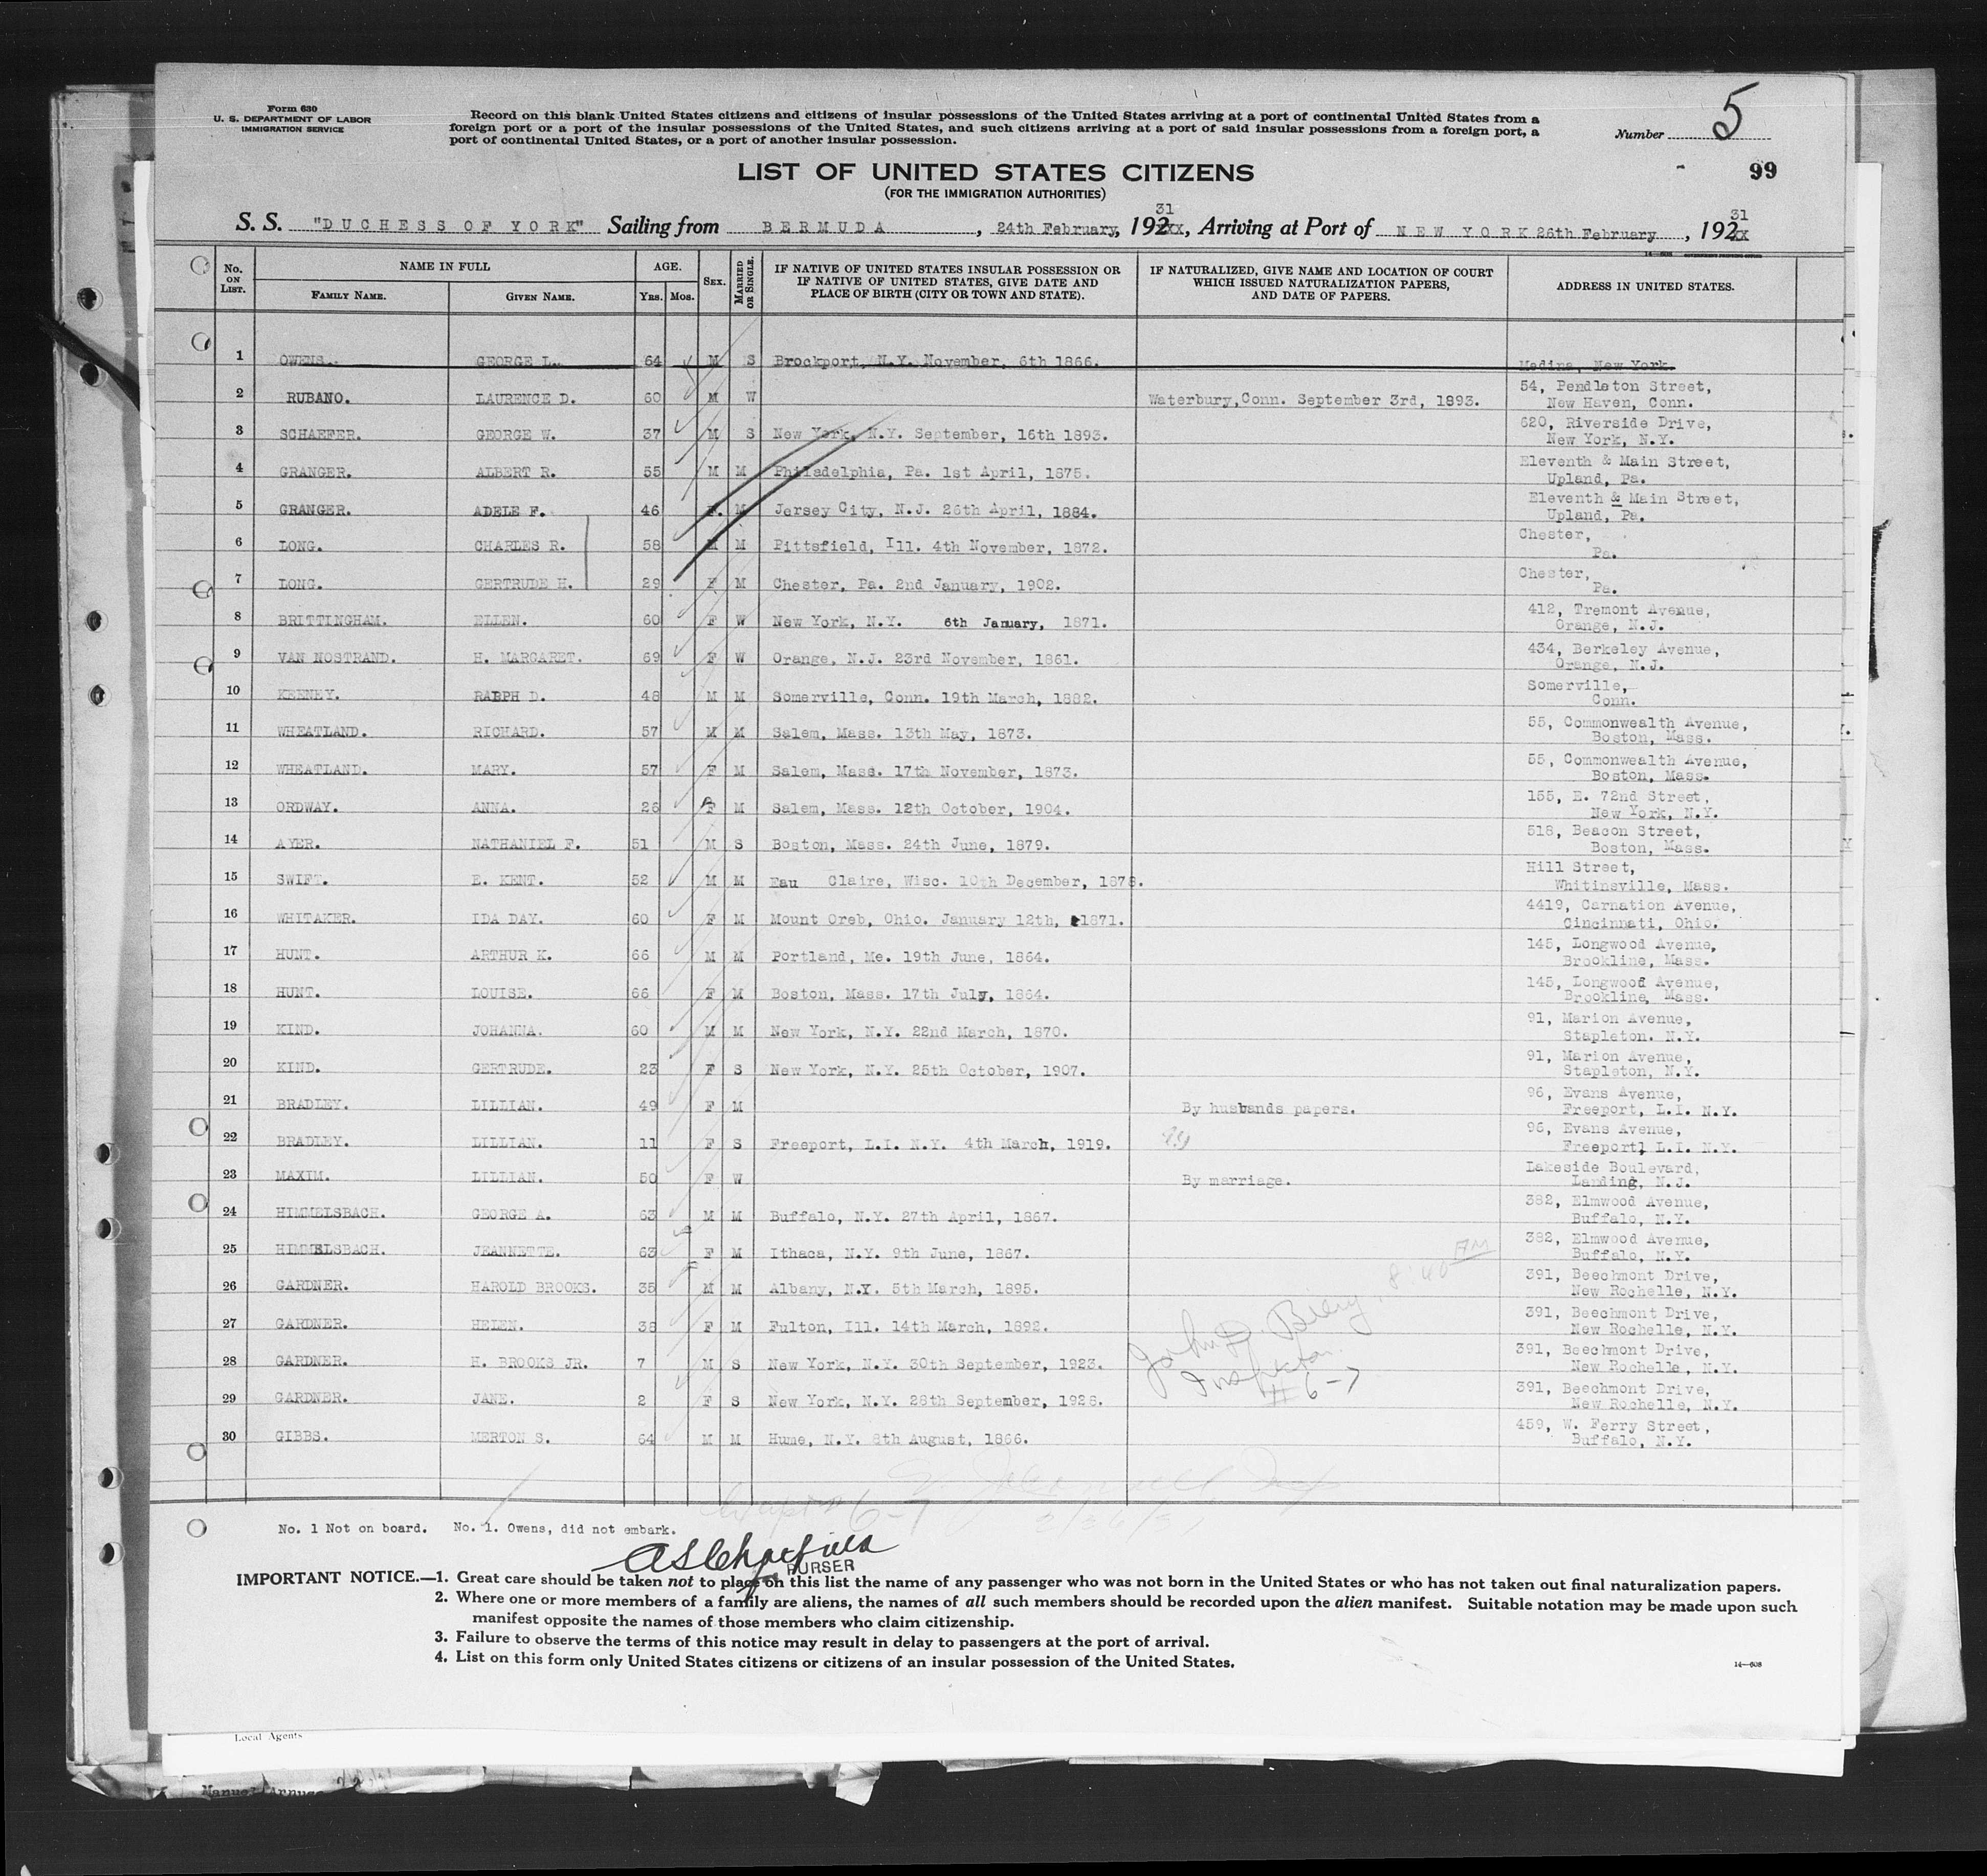 Form 630
U. S. DEPARTMENT OF LABOR
IMMIGRATION SERVICE
Record on this blank United States citizens and citizens of insular possessions of the United States arriving at a port of continental United States from a
foreign port or a port of the insular possessions of the United States, and such citizens arriving at a port of said insular possessions from a foreign port, a
port of continental United States, or a port of another insular possession.
Number 5
99
LIST OF UNITED STATES CITIZENS
(FOR THE IMMIGRATION AUTHORITIES)
S. S. "DUCHESS OF YORK" Sailing from BERMUDA, 24th February, 192 31, Arriving at Port of NEW YORK 26th February, 192 31
No. ON LIST. NAME IN FULL FAMILY NAME. GIVEN NAME. AGE. YRS. MOS. SEX. MARRIED OR SINGLE. IF NATIVE OF UNITED STATES INSULAR POSSESSION OR IF NATIVE OF UNITED STATES, GIVE DATE AND PLACE OF BIRTH (CITY OR TOWN AND STATE). IF NATURALIZED, GIVE NAME AND LOCATION OF COURT WHICH ISSUED NATURALIZATION PAPERS, AND DATE OF PAPERS. ADDRESS IN UNITED STATES.
1 OWENS. GEORGE L. 64 M S Brockport, N.Y. November, 6th 1866. Medina, New York.
2 RUBANO. LAURENCE D. 60 M W Waterbury, Conn. September 3rd, 1893. 54, Pendleton Street, New Haven, Conn.
3 SCHAEFER. GEORGE W. 37 M S New York, N.Y. September, 16th 1893. 620, Riverside Drive, New York, N.Y.
4 GRANGER. ALBERT R. 55 M M Philadelphia, Pa. 1st April, 1875. Eleventh & Main Street, Upland, Pa.
5 GRANGER. ADELE F. 46 F. M Jersey City, N.J. 26th April, 1884. Eleventh & Main Street, Upland, Pa.
6 LONG. CHARLES R. 58 M M Pittsfield, Ill. 4th November, 1872. Chester, Pa.
7 LONG. GERTRUDE H. 29 F M Chester, Pa. 2nd January, 1902. Chester, Pa.
8 BRITTINGHAM. ELLEN. 60 F W New York, N.Y. 6th January, 1871. 412, Tremont Avenue, Orange, N.J.
9 VAN NOSTRAND. H. MARGARET. 69 F W Orange, N.J. 23rd November, 1861. 434, Berkeley Avenue, Orange, N.J.
10 KEENEY. RALPH D. 48 M M Somerville, Conn. 19th March, 1882. Somerville, Conn.
11 WHEATLAND. RICHARD. 57 M M Salem, Mass. 13th May, 1873. 55, Commonwealth Avenue, Boston, Mass.
12 WHEATLAND. MARY. 57 F M Salem, Mass. 17th November, 1873. 55, Commonwealth Avenue, Boston, Mass.
13 ORDWAY. ANNA. 26 F M Salem, Mass. 12th October, 1904. 155, E. 72nd Street, New York, N.Y.
14 AYER. NATHANIEL F. 51 M S Boston, Mass. 24th June, 1879. 518, Beacon Street, Boston, Mass.
15 SWIFT. E. KENT. 52 M M Eau Claire, Wisc. 10th December, 1878. Hill Street, Whitinsville, Mass.
16 WHITAKER. IDA DAY. 60 F M Mount Oreb, Ohio. January 12th, 1871. 4419, Carnation Avenue, Cincinnati, Ohio.
17 HUNT. ARTHUR K. 66 M M Portland, Me. 19th June, 1864. 145, Longwood Avenue, Brookline, Mass.
18 HUNT. LOUISE. 66 F M Boston, Mass. 17th July, 1864. 145, Longwood Avenue, Brookline, Mass.
19 KIND. JOHANNA. 60 M M New York, N.Y. 22nd March, 1870. 91, Marion Avenue, Stapleton. N.Y.
20 KIND. GERTRUDE. 23 F S New York, N.Y. 25th October, 1907. 91, Marion Avenue, Stapleton, N.Y.
21 BRADLEY. LILLIAN. 49 F M By husbands papers. 96, Evans Avenue, Freeport, L.I. N.Y.
22 BRADLEY. LILLIAN. 11 F S Freeport, L.I. N.Y. 4th March, 1919. 96, Evans Avenue, Freeport, L.I. N.Y.
23 MAXIM. LILLIAN. 50 F W By marriage. Lakeside Boulevard, Landing, N.J.
24 HIMMELSBACH. GEORGE A. 63 M M Buffalo, N.Y. 27th April, 1867. 382, Elmwood Avenue, Buffalo, N.Y.
25 HIMMELSBACH. JEANNETTE. 63 F M Ithaca, N.Y. 9th June, 1867. 382, Elmwood Avenue, Buffalo, N.Y.
26 GARDNER. HAROLD BROOKS. 35 M M Albany, N.Y. 5th March, 1895. 391, Beechmont Drive, New Rochelle, N.Y.
27 GARDNER. HELEN. 38 F M Fulton, Ill. 14th March, 1892. 391, Beechmont Drive, New Rochelle, N.Y.
28 GARDNER. H. BROOKS JR. 7 M S New York, N.Y. 30th September, 1923. 391, Beechmont Drive, New Rochelle, N.Y.
29 GARDNER. JANE. 2 F S New York, N.Y. 28th September, 1928. 391, Beechmont Drive, New Rochelle, N.Y.
30 GIBBS. MERTON S. 64 M M Hume, N.Y. 8th August, 1866. 459, W. Ferry Street, Buffalo, N.Y.
8:40 AM
John D. Biery
Inspector
# 6-7
No. 1 Not on board. No. 1. Owens, did not embark.
PURSER
IMPORTANT NOTICE.—1. Great care should be taken not to place on this list the name of any passenger who was not born in the United States or who has not taken out final naturalization papers.
2. Where one or more members of a family are aliens, the names of all such members should be recorded upon the alien manifest. Suitable notation may be made upon such
manifest opposite the names of those members who claim citizenship.
3. Failure to observe the terms of this notice may result in delay to passengers at the port of arrival.
4. List on this form only United States citizens or citizens of an insular possession of the United States.
14—608
Local Agents